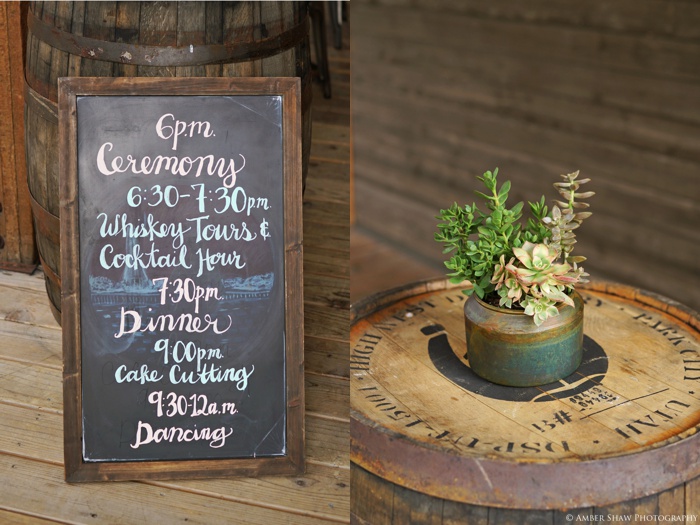 6p.m.
Ceremony
6:30-7:30p.m.
Whiskey Tours &
Cocktail Hour
7:30p.m.
Dinner
9:00p.m.
Cake Cutting
9:30-12a.m.
Dancing
HIGH WEST
PARK CITY, UTAH
DSP-UT-15001
© AMBER SHAW PHOTOGRAPHY